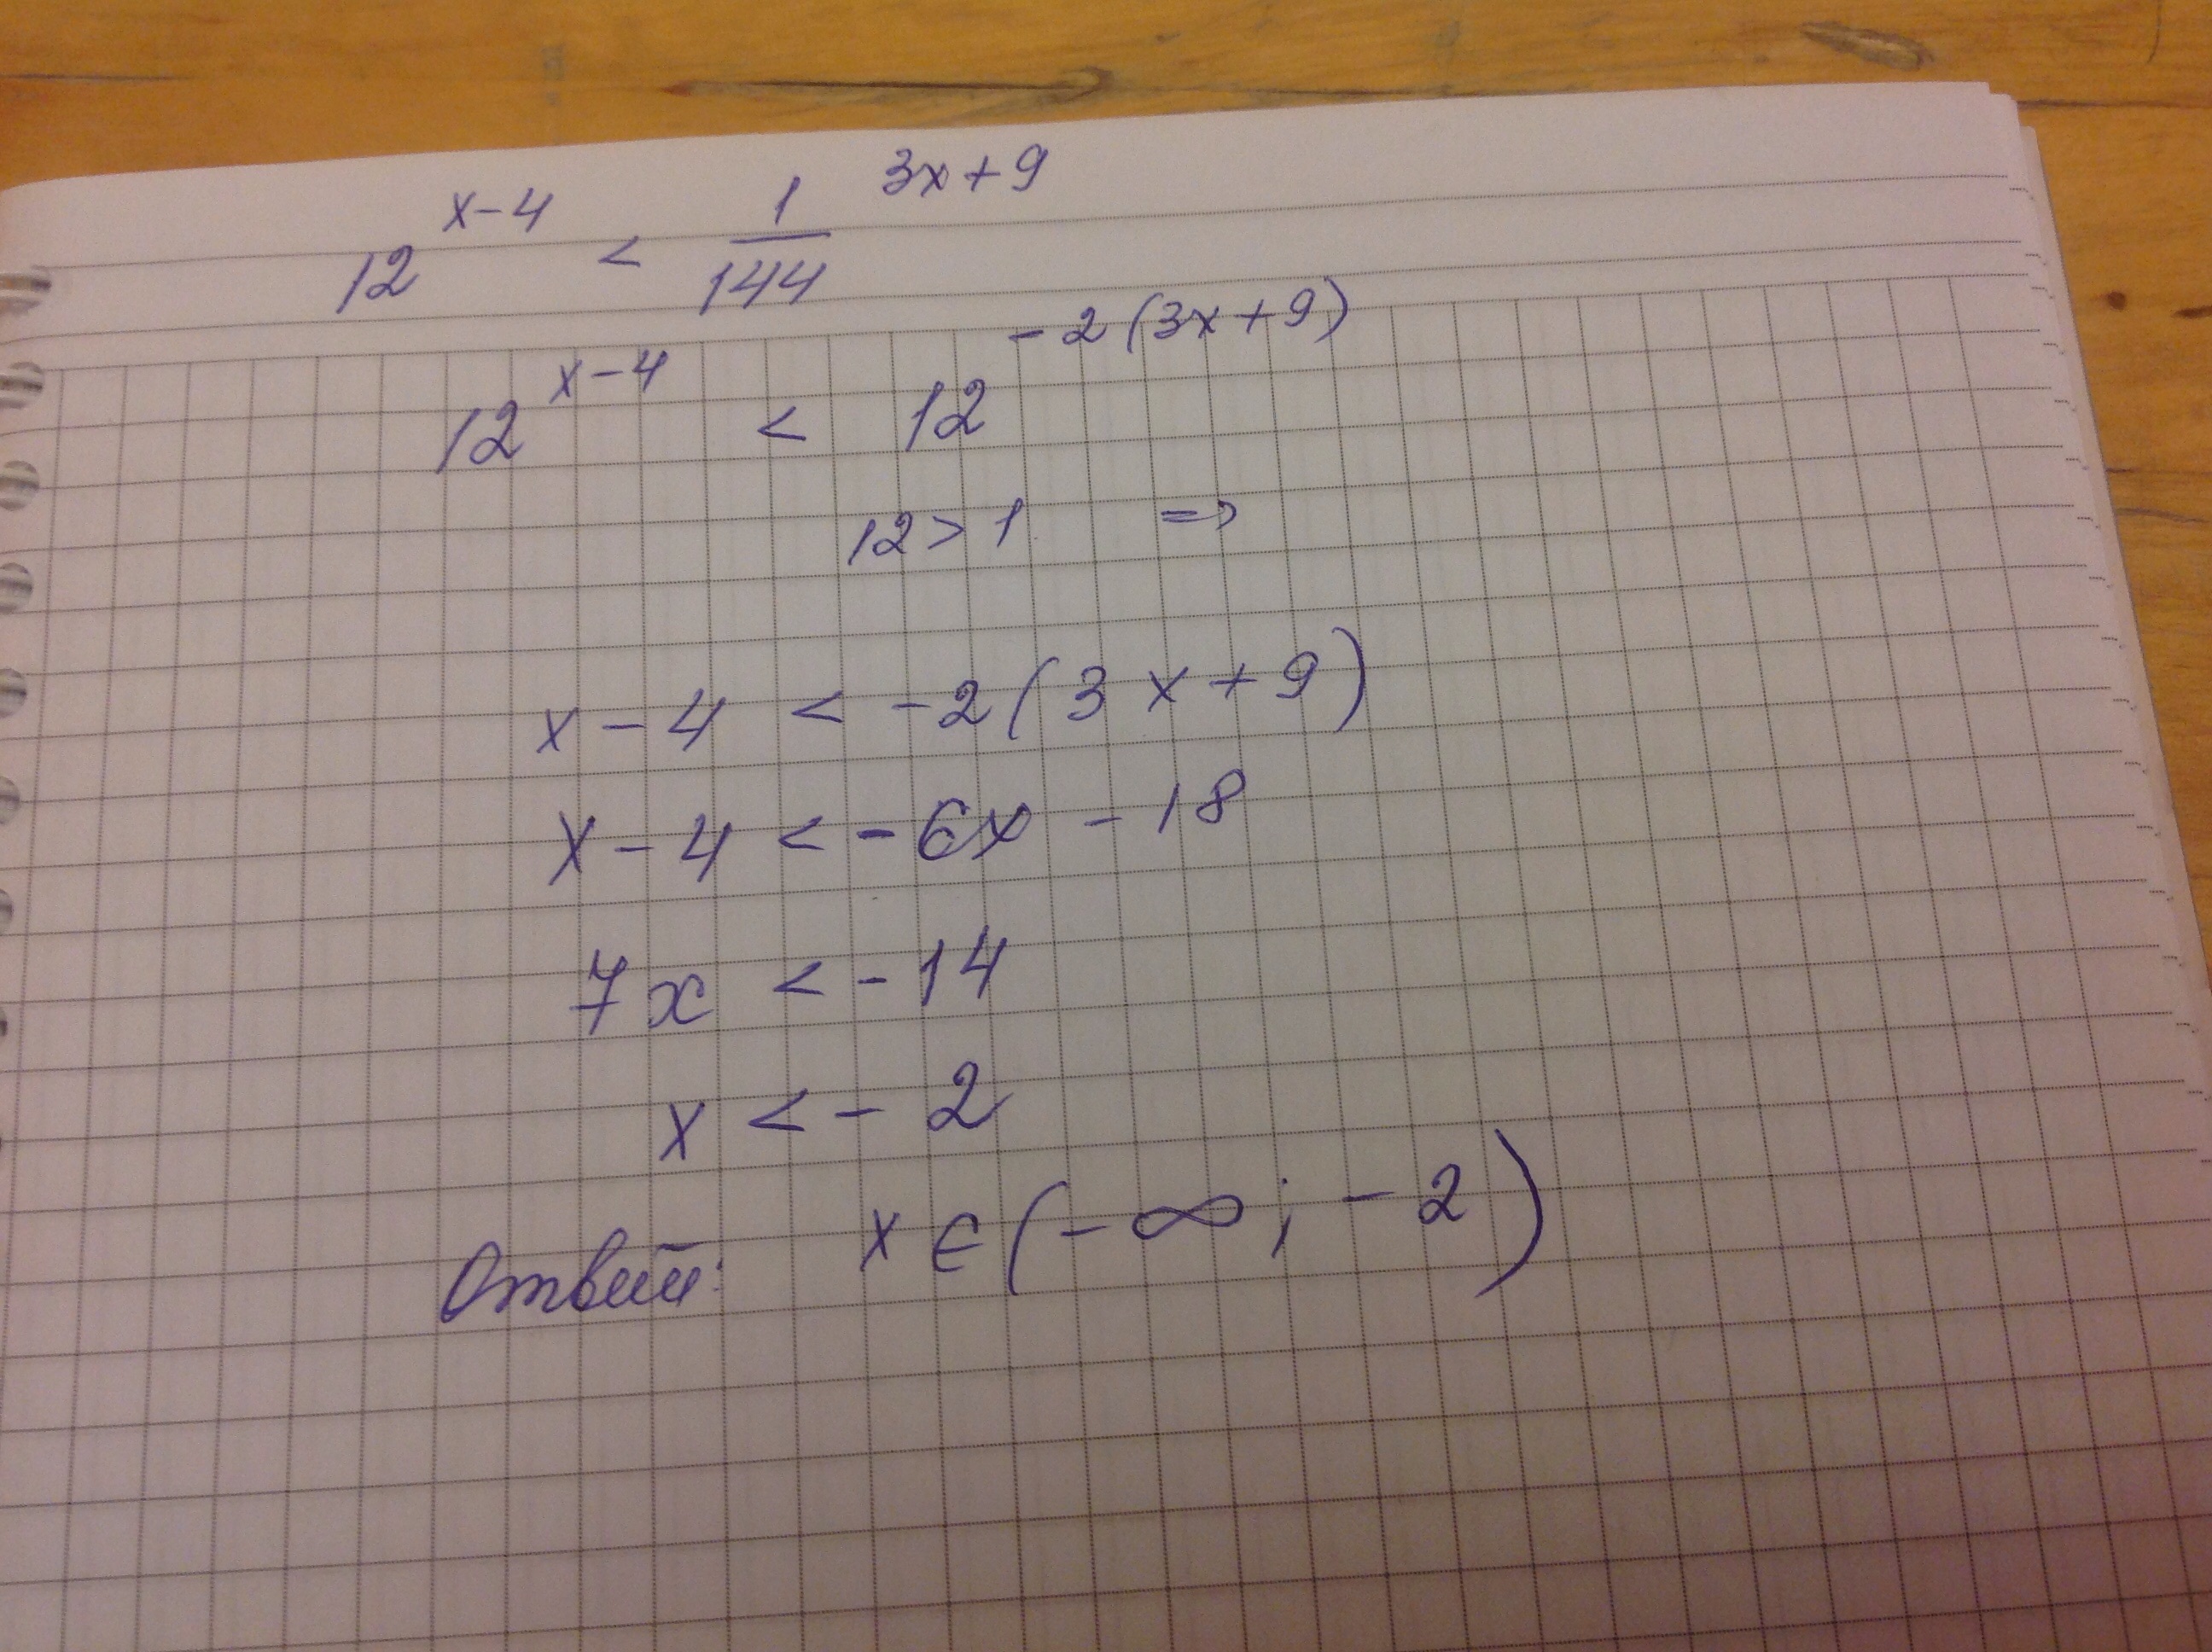 12^{x-4} < \frac{1}{144}^{3x+9}
12^{x-4} < 12^{-2(3x+9)}
12>1 =>
x-4 < -2(3x+9)
x-4 < -6x - 18
7x < -14
x < -2
Ответ: x∈(-∞; -2)